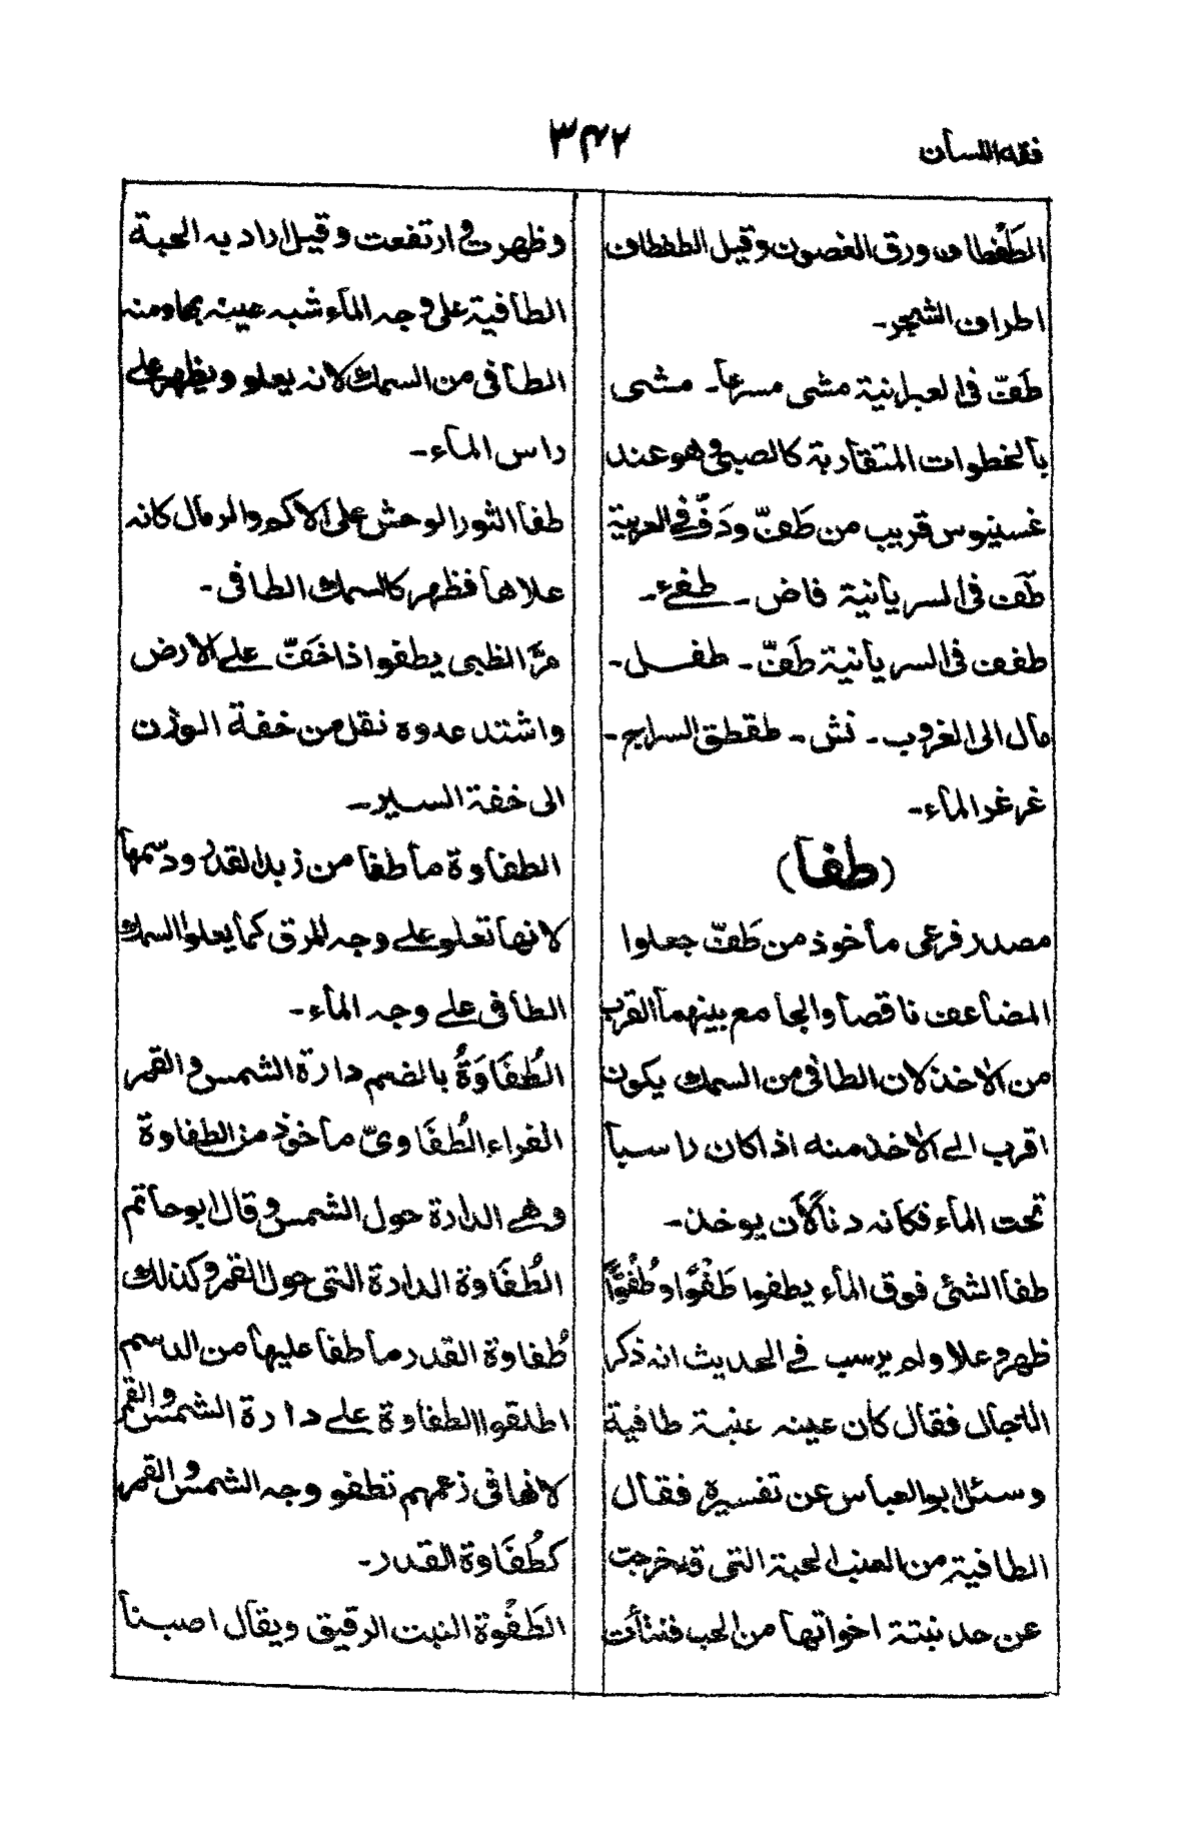 فقه اللسان
۳۴۲
الطَفْطاف ورق الغصون وقيل الطفطاف
اطراف الشجر۔
طَفّ فى العبرانية مشى مسرعاً۔ مشى
بالخطوات المتقاربة كالصبى وهو عند
غسينوس قريب من طَفّ ودَفّ فى العربية
طَفّ فى السريانية فاض۔ طفىٔ۔
طفف فى السريانية طَفّ۔ طفل۔
مال الى الغروب۔ نش۔ طقطق السراج۔
غرغر الماء۔
(طفا)
مصدر فرعى مأخوذ من طَفّ جعلوا
المضاعف ناقصا والجامع بينهما القرب
من الاخذ لان الطافى من السمك يكون
اقرب الى الاخذ منه اذا كان راسبا
تحت الماء فكانه دنا لأن يوخذ۔
طفا الشئ فوق الماء يطفوا طَفْوًا وطُفُوًّا
ظهر وعلا ولم يرسب فى الحديث انه ذكر
الدجال فقال كان عينه عنبة طافية
وسئل ابو العباس عن تفسيره فقال
الطافية من العنب الحبة التى قد خرجت
عن حد نبتة اخواتها من الحب فنتأت
وظهرت وارتفعت وقيل اراد به الحبة
الطافية على وجه الماء شبه عينه بها ومنه
الطافى من السمك لانه يعلو ويظهر على
راس الماء۔
طفا الثور الوحش على الاكم والرمال كانه
علاها فظهر كالسمك الطافى۔
مرّ الظبى يطفوا ذا خَفّ على الارض
واشتد عدوه نقل من خفة الوزن
الى خفة السير۔
الطفاوة ما طفا من زبد القدر ودسمها
لانها تعلو على وجه المرق كما يعلوا السمك
الطافى على وجه الماء۔
الطُفَاوَةُ بالضم دارة الشمس والقمر
الفراء الطُفَاوىّ مأخوذ من الطفاوة
وهى الدارة حول الشمس وقال ابو حاتم
الطُفَاوة الدارة التى حول القمر وكذلك
طُفاوة القدر ما طفا عليها من الدسم
اطلقوا الطفاوة على دارة الشمس والقمر
لانها فى زعمهم تطفو وجه الشمس والقمر
كطُفَاوة القدر۔
الطَفْوة النبت الرقيق ويقال اصبنا